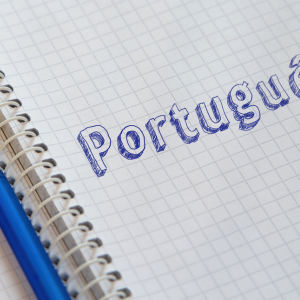 Portuguê